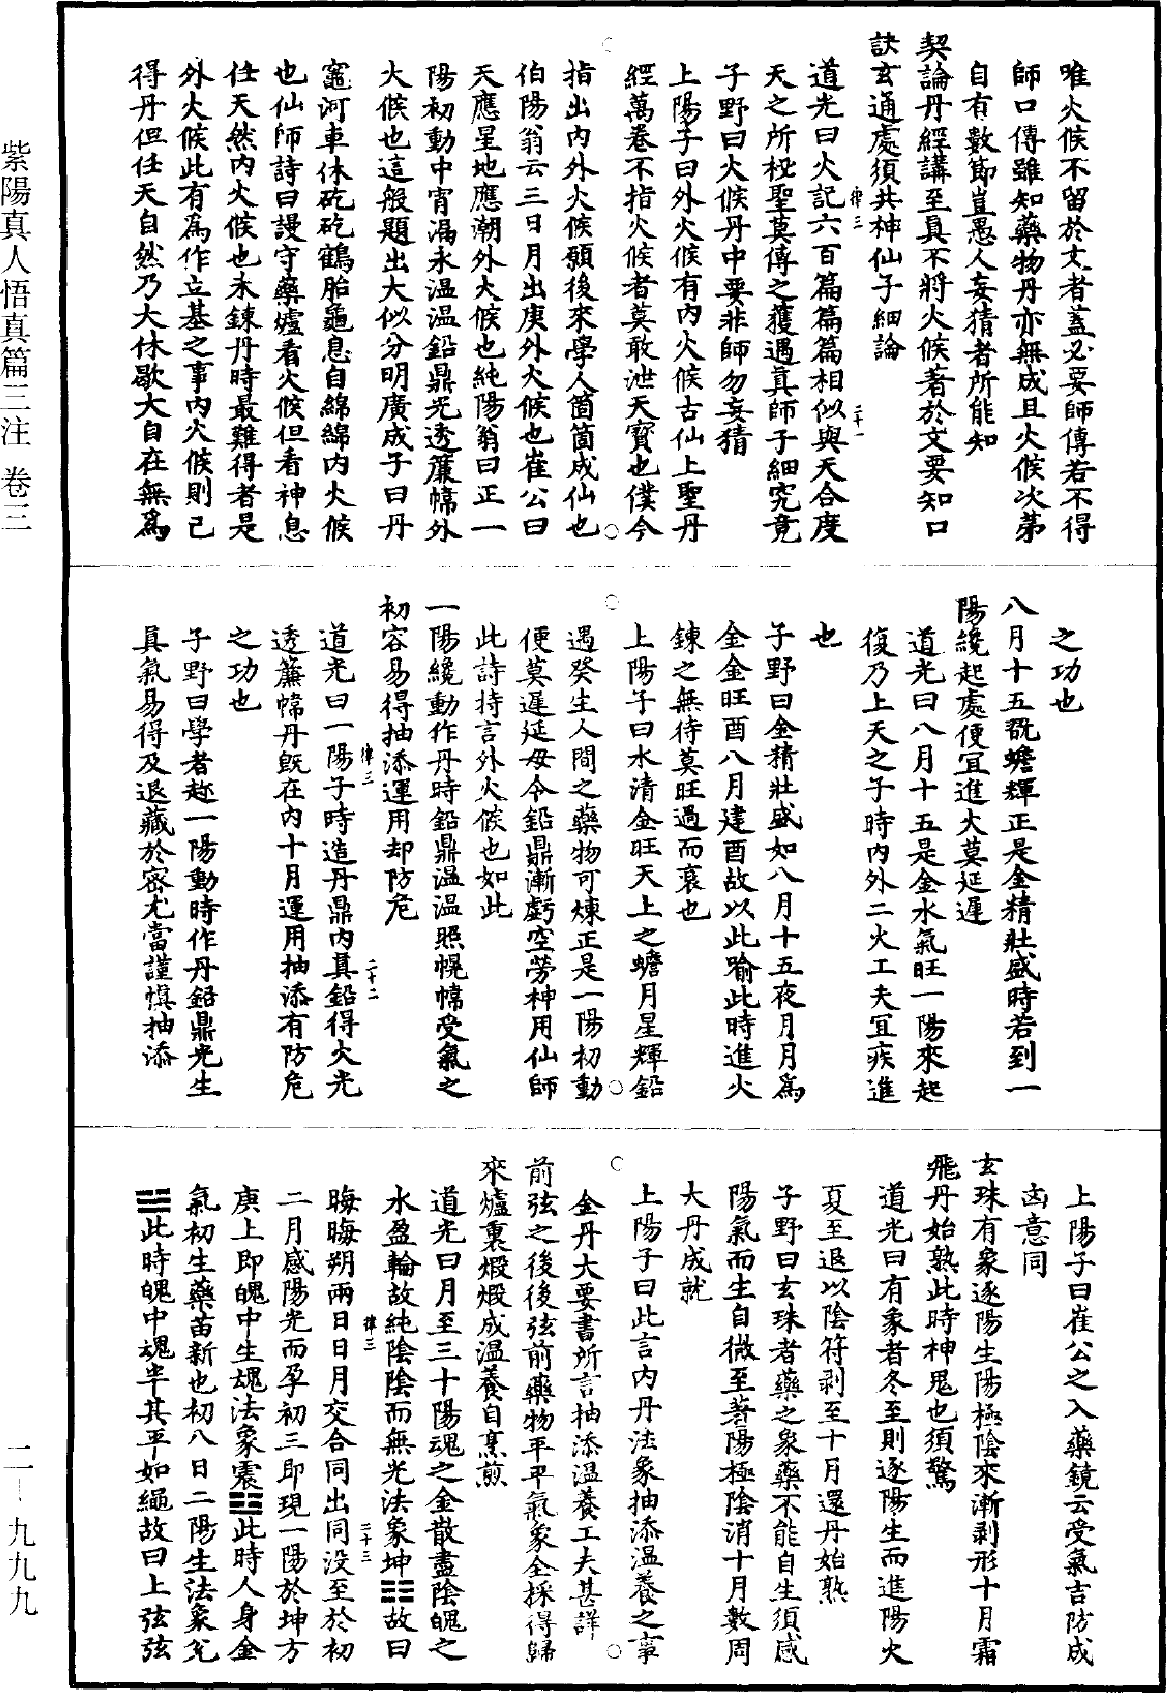 紫陽真人悟真篇三注 卷三
二－九九九
唯火候不留於文者蓋必要師傳若不得
師口傳雖知藥物丹亦無成且火候次第
自有數節豈愚人妄猜者所能知
契論丹經講至真不將火候著於文要知口
訣玄通處須共神仙子細論
道光曰火記六百篇篇篇相似與天合度
律三
二十一
天之所祕聖莫傳之獲遇真師子細究竟
子野曰火候丹中要非師勿妄猜
上陽子曰外火候有內火候古仙上聖丹
經萬卷不指火候者莫敢泄天寶也僕今
指出內外火候願後來學人箇箇成仙也
伯陽翁云三日月出庚外火候也崔公曰
天應星地應潮外火候也純陽翁曰正一
陽初動中宵漏永温温鉛鼎光透簾幃外
火候也這般題出大似分明廣成子曰丹
竈河車休矻矻鶴胎龜息自綿綿內火候
也仙師詩曰謾守藥爐看火候但看神息
任天然內火候也未鍊丹時最難得者是
外火候此有爲作立基之事內火候則已
得丹但任天自然乃大休歇大自在無爲
之功也
八月十五翫蟾輝正是金精壯盛時若到一
陽纔起處便宜進火莫延遲
道光曰八月十五是金水氣旺一陽來起
復乃上天之子時內外二火工夫宜疾進
也
子野曰金精壯盛如八月十五夜月月爲
金金旺酉八月建酉故以此喻此時進火
鍊之無待莫旺過而衰也
上陽子曰水清金旺天上之蟾月星輝鉛
遇癸生人間之藥物可煉正是一陽初動
便莫遲延毋令鉛鼎漸虧空勞神用仙師
此詩持言外火候也如此
一陽纔動作丹時鉛鼎温温照幌幃受氣之
初容易得抽添運用却防危
律三
二十二
道光曰一陽子時造丹鼎內真鉛得火光
透簾幃丹既在內十月運用抽添有防危
之功也
子野曰學者趂一陽動時作丹鉛鼎光生
真氣易得及退藏於密尤當謹慎抽添
上陽子曰崔公之入藥鏡云受氣吉防成
凶意同
玄珠有象逐陽生陽極陰來漸剥形十月霜
飛丹始熟此時神鬼也須驚
道光曰有象者冬至則逐陽生而進陽火
夏至退以陰符剥至十月還丹始熟
子野曰玄珠者藥之象藥不能自生須感
陽氣而生自微至著陽極陰消十月數周
大丹成就
上陽子曰此言內丹法象抽添温養之事
金丹大要書所言抽添温養工夫甚詳
前弦之後後弦前藥物平平氣象全採得歸
來爐裏煅煅成温養自烹煎
道光曰月至三十陽魂之金散盡陰魄之
水盈輪故純陰陰而無光法象坤☷故曰
律三
二十三
晦晦朔兩日日月交合同出同没至於初
二月感陽光而孕初三即現一陽於坤方
庚上即魄中生魂法象震☳此時人身金
氣初生藥苗新也初八日二陽生法象兊
☱此時魄中魂半其平如繩故曰上弦弦